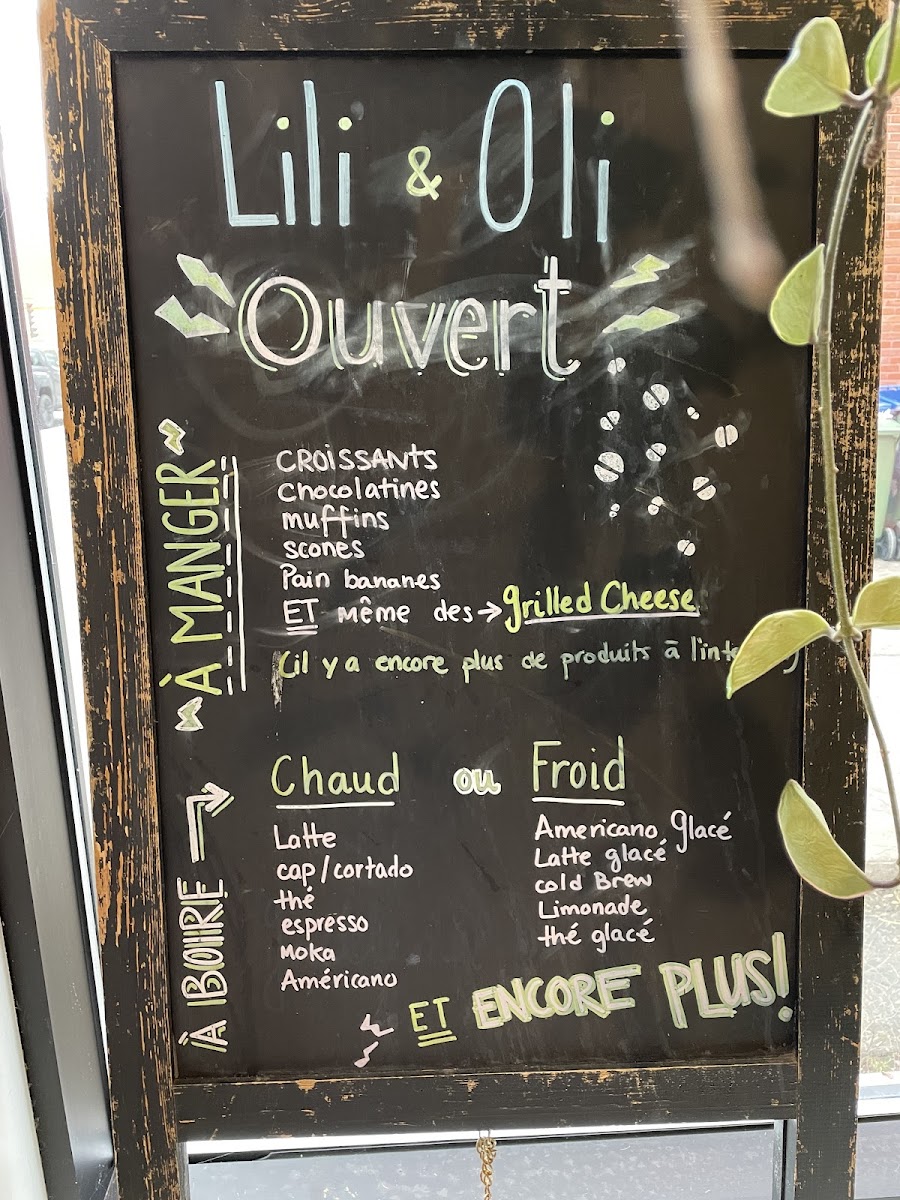 Lili & Oli
Ouvert
À MANGER
CROISSANTS
Chocolatines
muffins
scones
Pain bananes
ET même des → grilled Cheese
(il y a encore plus de produits à
À BOIRE
Chaud ou Froid
Latte
cap/cortado
thé
espresso
Moka
Américano
Americano glacé
Latte glacé
cold Brew
Limonade
thé glacé
ET ENCORE PLUS!